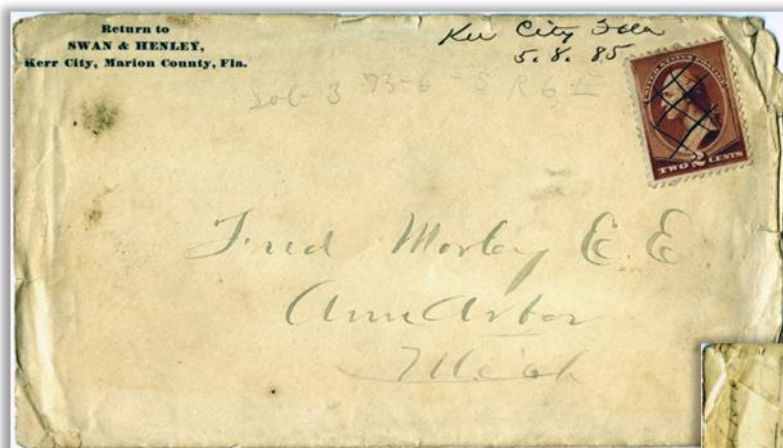 Return to
SWAN & HENLEY,
Kerr City, Marion County, Fla.
Ker City Fla
5. 8. 85
UNITED STATES POSTAGE
TWO 2 CENTS
Fred Morley C. E.
Ann Arbor
Mich